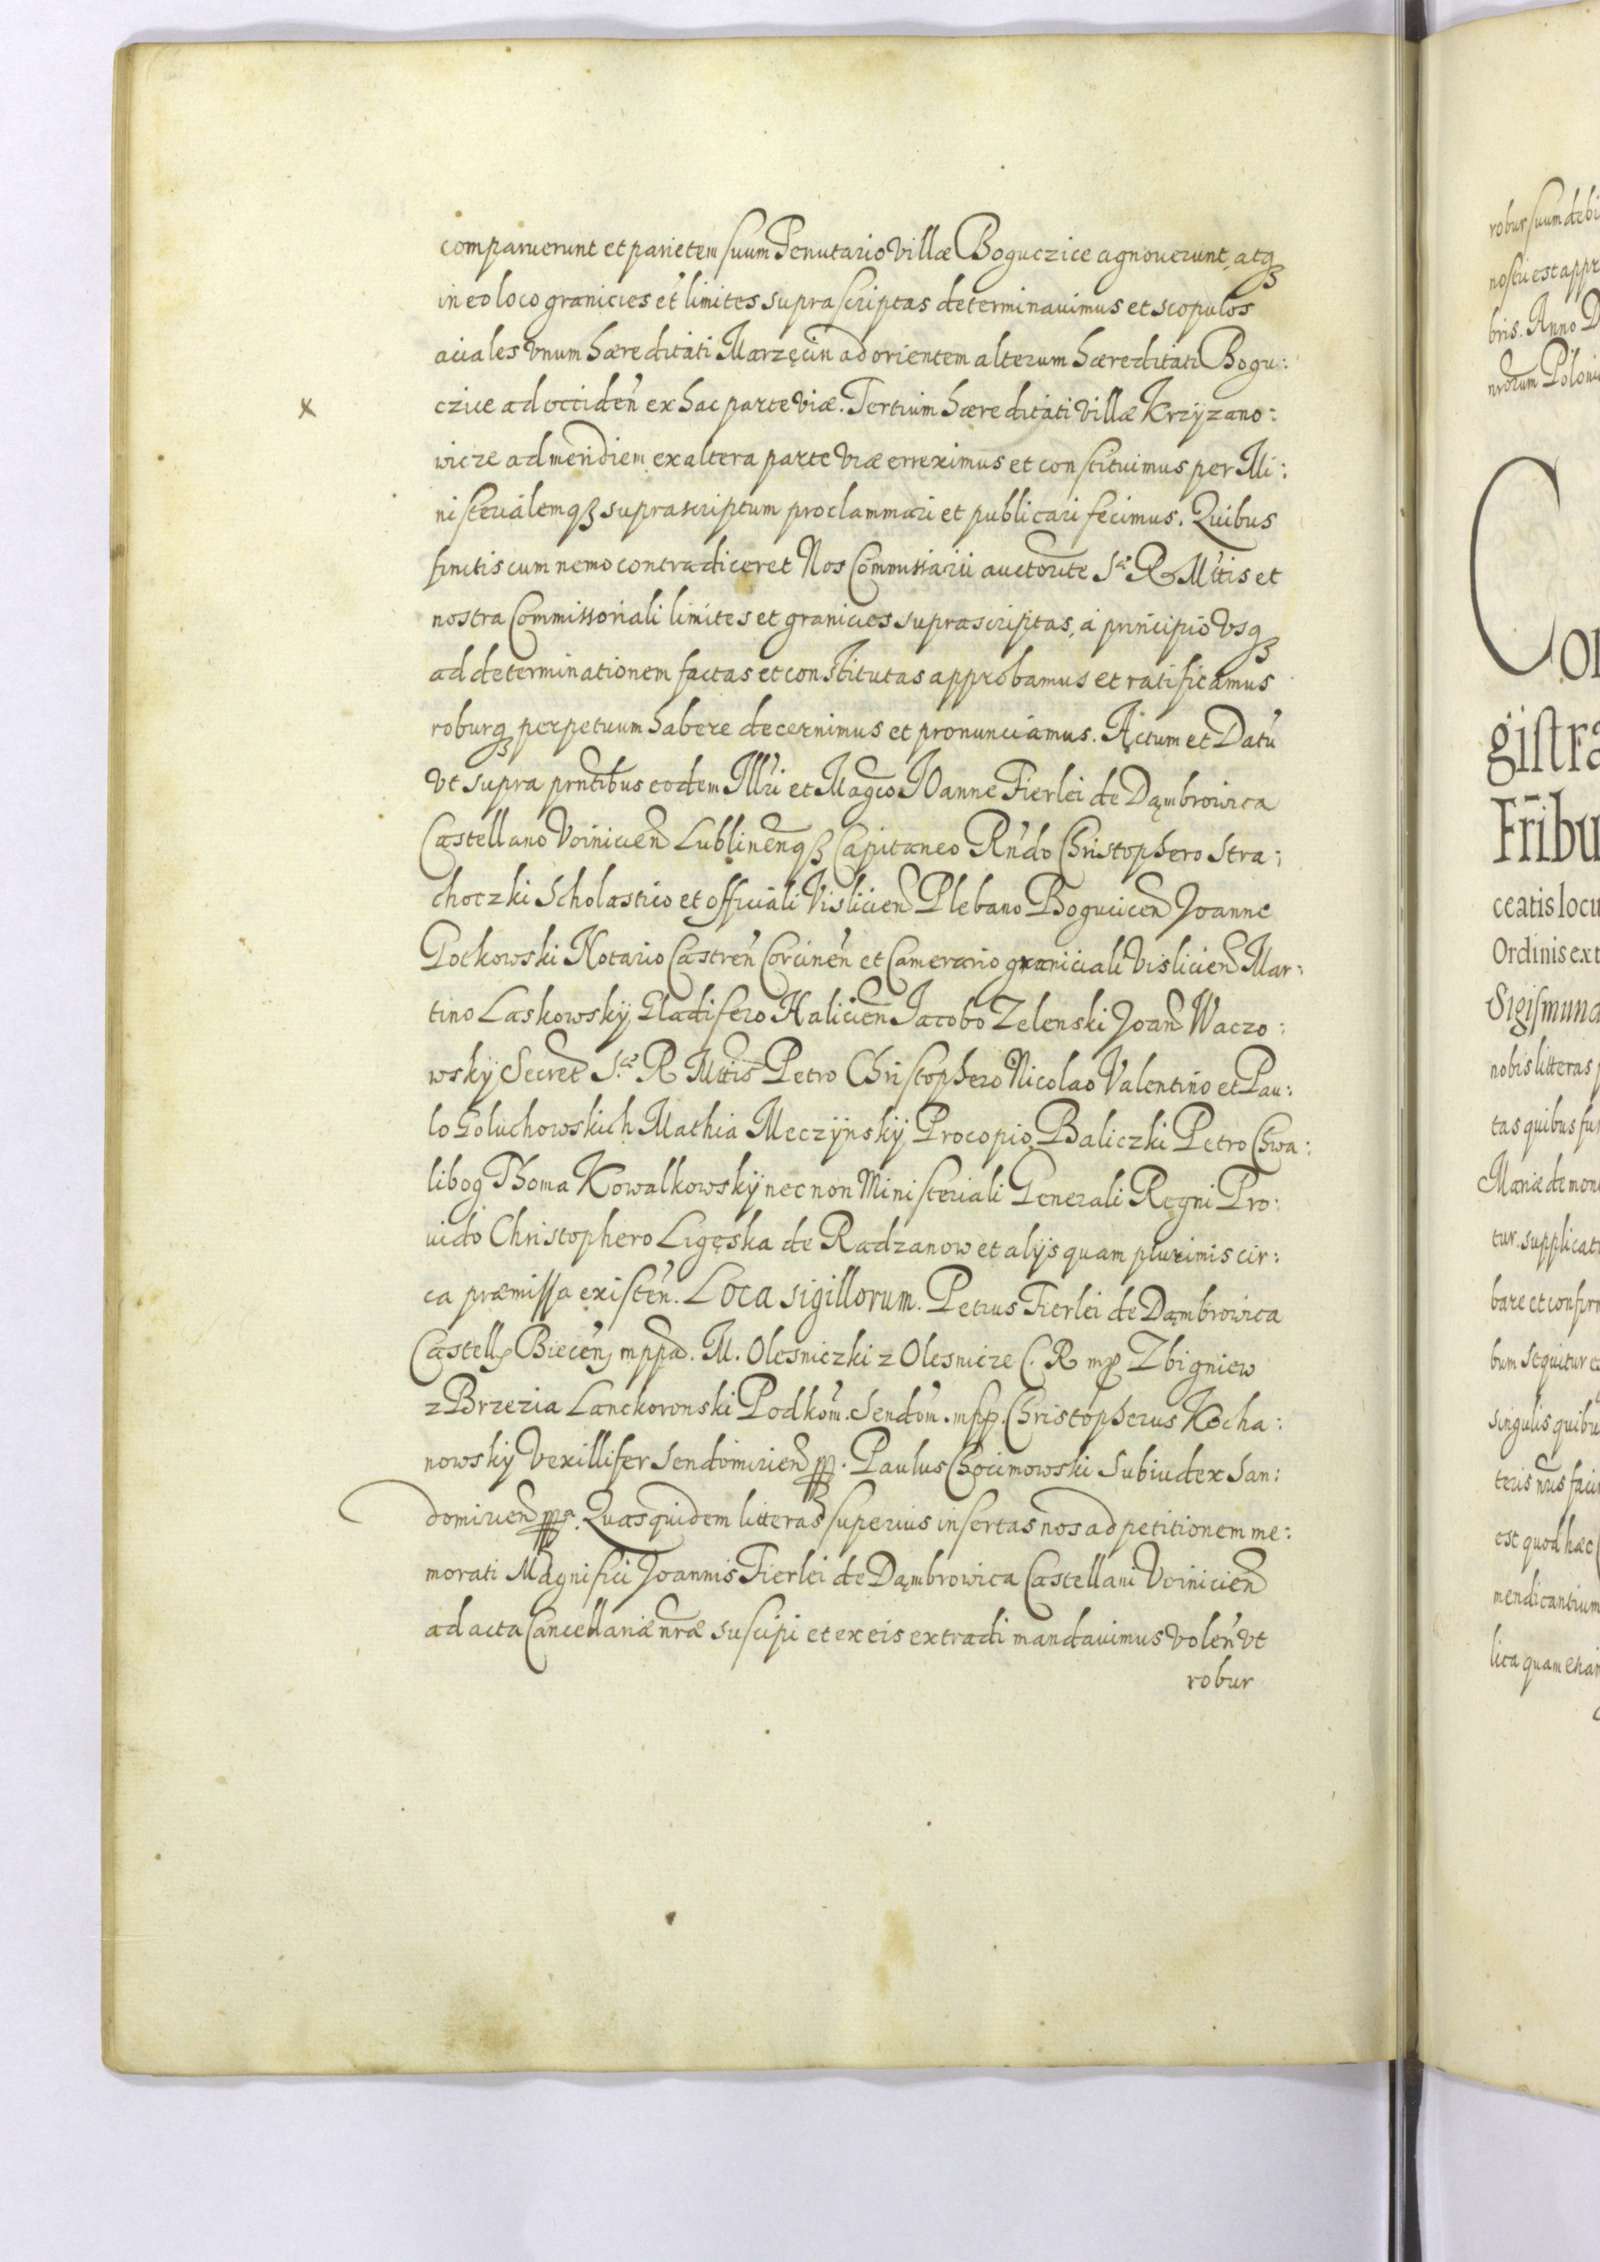 comparuerunt et parietem suum Tenutario Villæ Boguczice agnouerunt, atqȝ
in eo loco granicies et limites suprascriptas determinauimus et scopulos
aciales vnum hæreditati Marzęcin ad orientem alterum hæreditati Bogu:
czice ad occideń ex hac parte viæ. Tertium hæreditati villæ Krzÿzano:
wicze ad meridiem ex altera parte viæ erreximus et constituimus per Mi:
nisterialemqȝ suprascriptum proclammari et publicari fecimus. Quibus
finitis cum nemo contradiceret Nos Commissarii auctorite Sᵉ R Mttis et
nostra Commissoriali limites et granicies suprascriptas, a principio vsqȝ
ad determinationem factas et constitutas approbamus et ratificamus
roburqȝ perpetuum habere decernimus et pronunciamus. Actum et Datū
vt supra prntibus eodem Illri et Magco Joanne Fierlei de Dąmbrowica
Castellano Voinicien Lublinenqȝ Capitaneo Rndo Christophero Stra:
choczki Scholastico et officiali Vislicien Plebano Bogucicen Joanne
Gotkowski Notario Castren Corcinen et Camerario graniciali Vislicien Mar:
tino Laskowskÿ, Gladifero Halicien Jacobo Zelenski Joan Waczo:
wskÿ Secret Sᵉ R Mttis Petro Christophero Nicolao Valentino et Pau:
lo Goluchowskich Mathia Meczÿnskÿ Procopio Baliczki Petro Chwa:
libog Thoma Kowalkowskÿ nec non Ministeriali Generali Regni Pro:
uido Christophero Ligęska de Radzanow et alÿs quam plurimis cir:
ca præmissa existen. Loca sigillorum. Petrus Fierlei de Dąmbrowica
Castell Biecen mppa. M. Olesniczki z Olesnicze C. R mp Zbigniew
z Brzezia Lanckoronski Podkom. Sendom. mpp. Christopherus Kocha:
nowskÿ Vexillifer Sendomirien pp. Paulus Chocimowski Subiudex San:
domirien ppa. Quas quidem litteras superius insertas nos ad petitionem me:
morati Magnifici Joannis Fierlei de Dąmbrowica Castellani Voinicien
ad acta Cancellariæ nræ suscipi et ex eis extradi mandauimus volen vt
robur
robur suum debi
nostri est appr
bris. Anno D
nrorum Poloni
Con
gistra
Fribu
ceatis locu
Ordinis ext
Sigismund
nobis litteras p
tas quibus su
Mariæ de mon
tur. supplicat
bare et confir
bum sequitur e
singulis quibu
teris nris faci
est quod hæc
mendicantium
lica quam etia